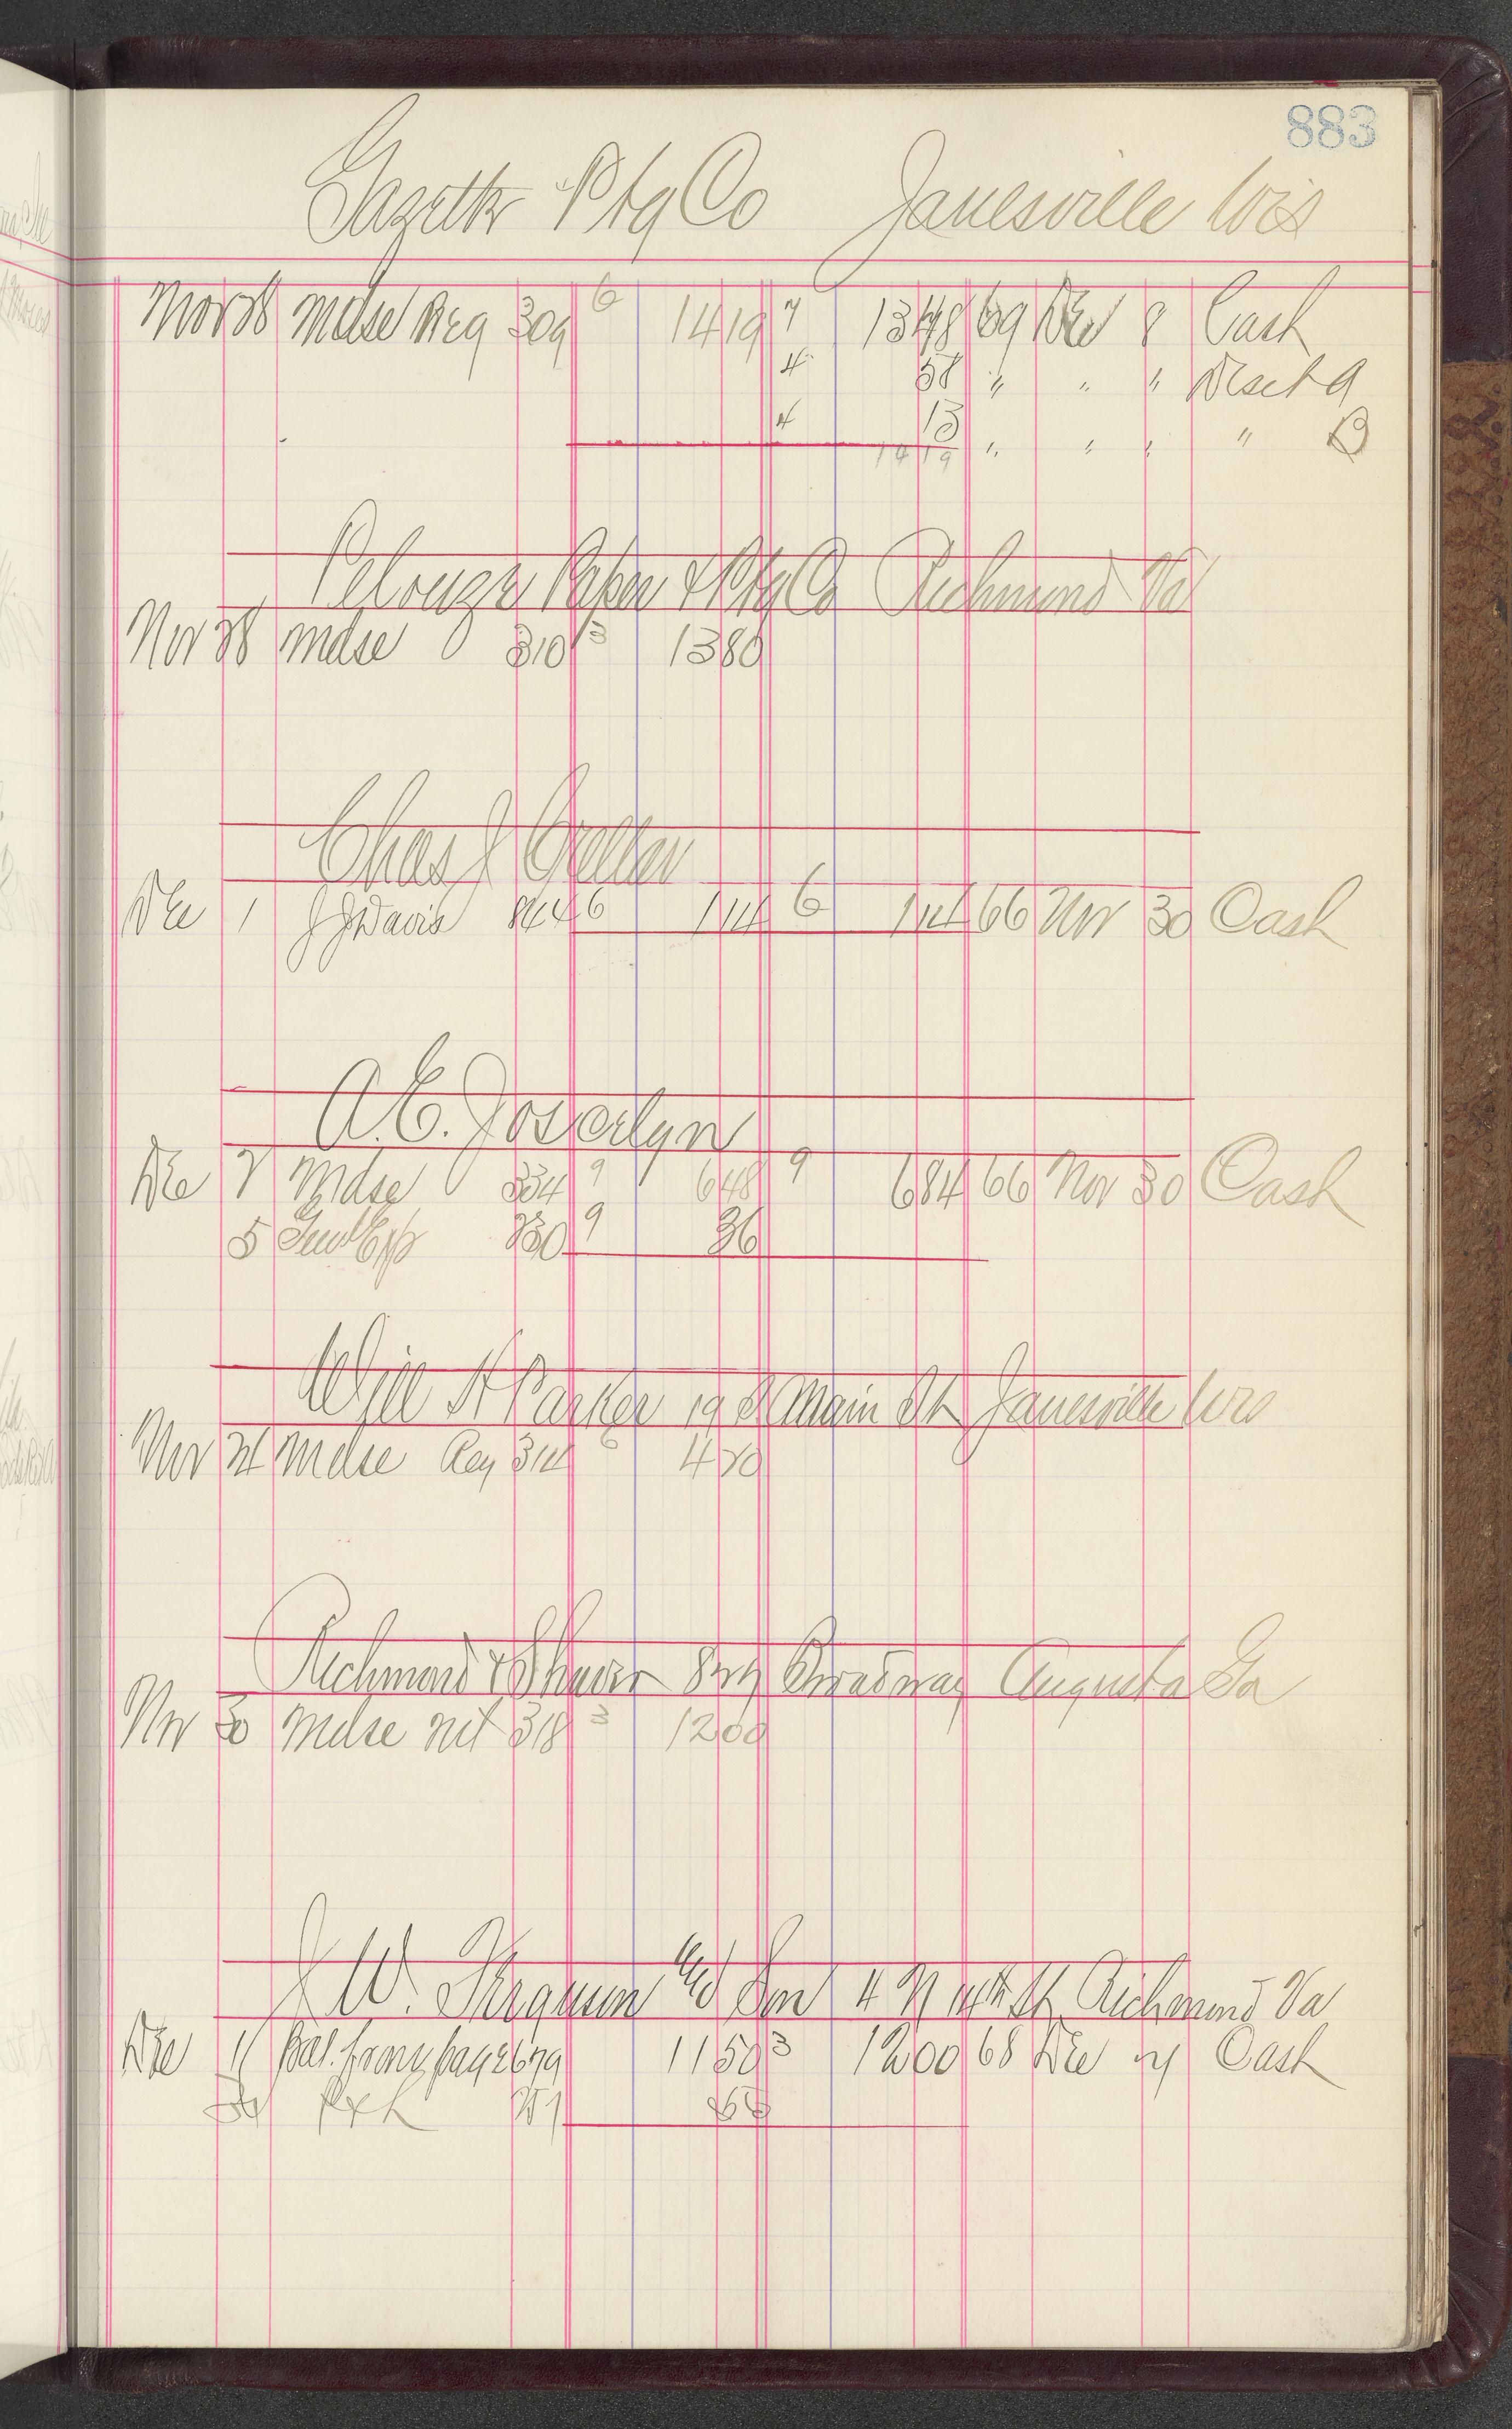 883
Gazette Ptg Co Janesville Wis
Nov 28 Mdse Reg 309 6 1419 7 1348 69 Dec 8 Cash
4 58 " " " Disct A
4 13 " " " " B
1419
Pelouze Paper & Ptg Co Richmond Va
Nov 28 Mdse 310 13 1380
Chas J
Dec 1 J J Davis 844 6 114 6 114 66 Nov 30 Cash
A. E. Joscelyn
Dec 2 Mdse 334 9 648 9 684 66 Nov 30 Cash
5 Exp 230 9 36
Will H Parker 19 S Main St Janesville Wis
Nov 24 Mdse Reg 314 6 420
Richmond & Shaver Broadway Augusta Ga
Nov 30 Mdse net 318 3 1200
J W. Ferguson and Son 4 N 14th St Richmond Va
Dec 11 Bal. from page 679 1150 3 1200 68 Dec 24 Cash
Exh 751 50